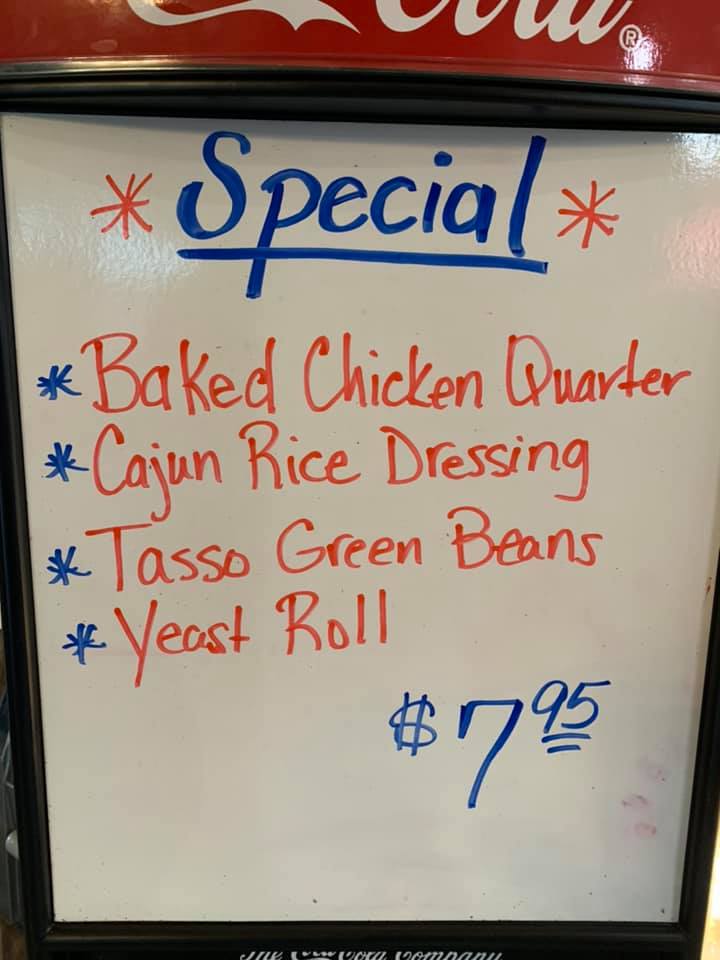 Cola®
* Special *
* Baked Chicken Quarter
* Cajun Rice Dressing
* Tasso Green Beans
* Yeast Roll
$7 95
The Coca-Cola Company